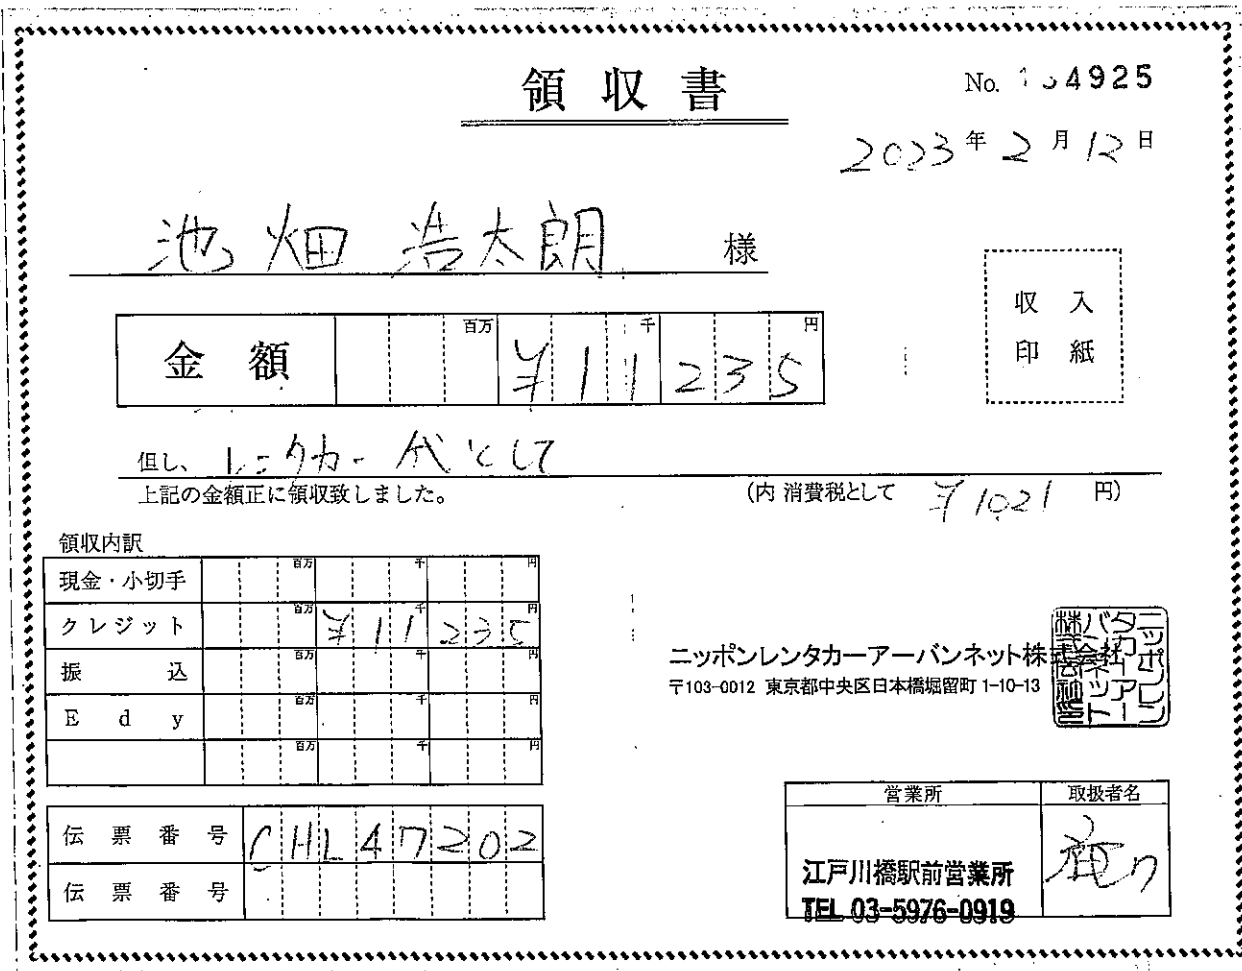 領収書
No. 4925
2023年2月12日
池畑 浩太朗 様
金額 百万 千 円 ¥11235
但し、レンタカー代として
上記の金額正に領収致しました。 (内 消費税として ¥1021 円)
収入
印紙
領収内訳
現金・小切手 百万 千 円
クレジット 百万 千 円 ¥11235
振込 百万 千 円
Edy 百万 千 円
百万 千 円
伝票番号 CHL47202
伝票番号
ニッポンレンタカーアーバンネット株式会社
〒103-0012 東京都中央区日本橋堀留町1-10-13
営業所 取扱者名
江戸川橋駅前営業所
TEL 03-5976-0919